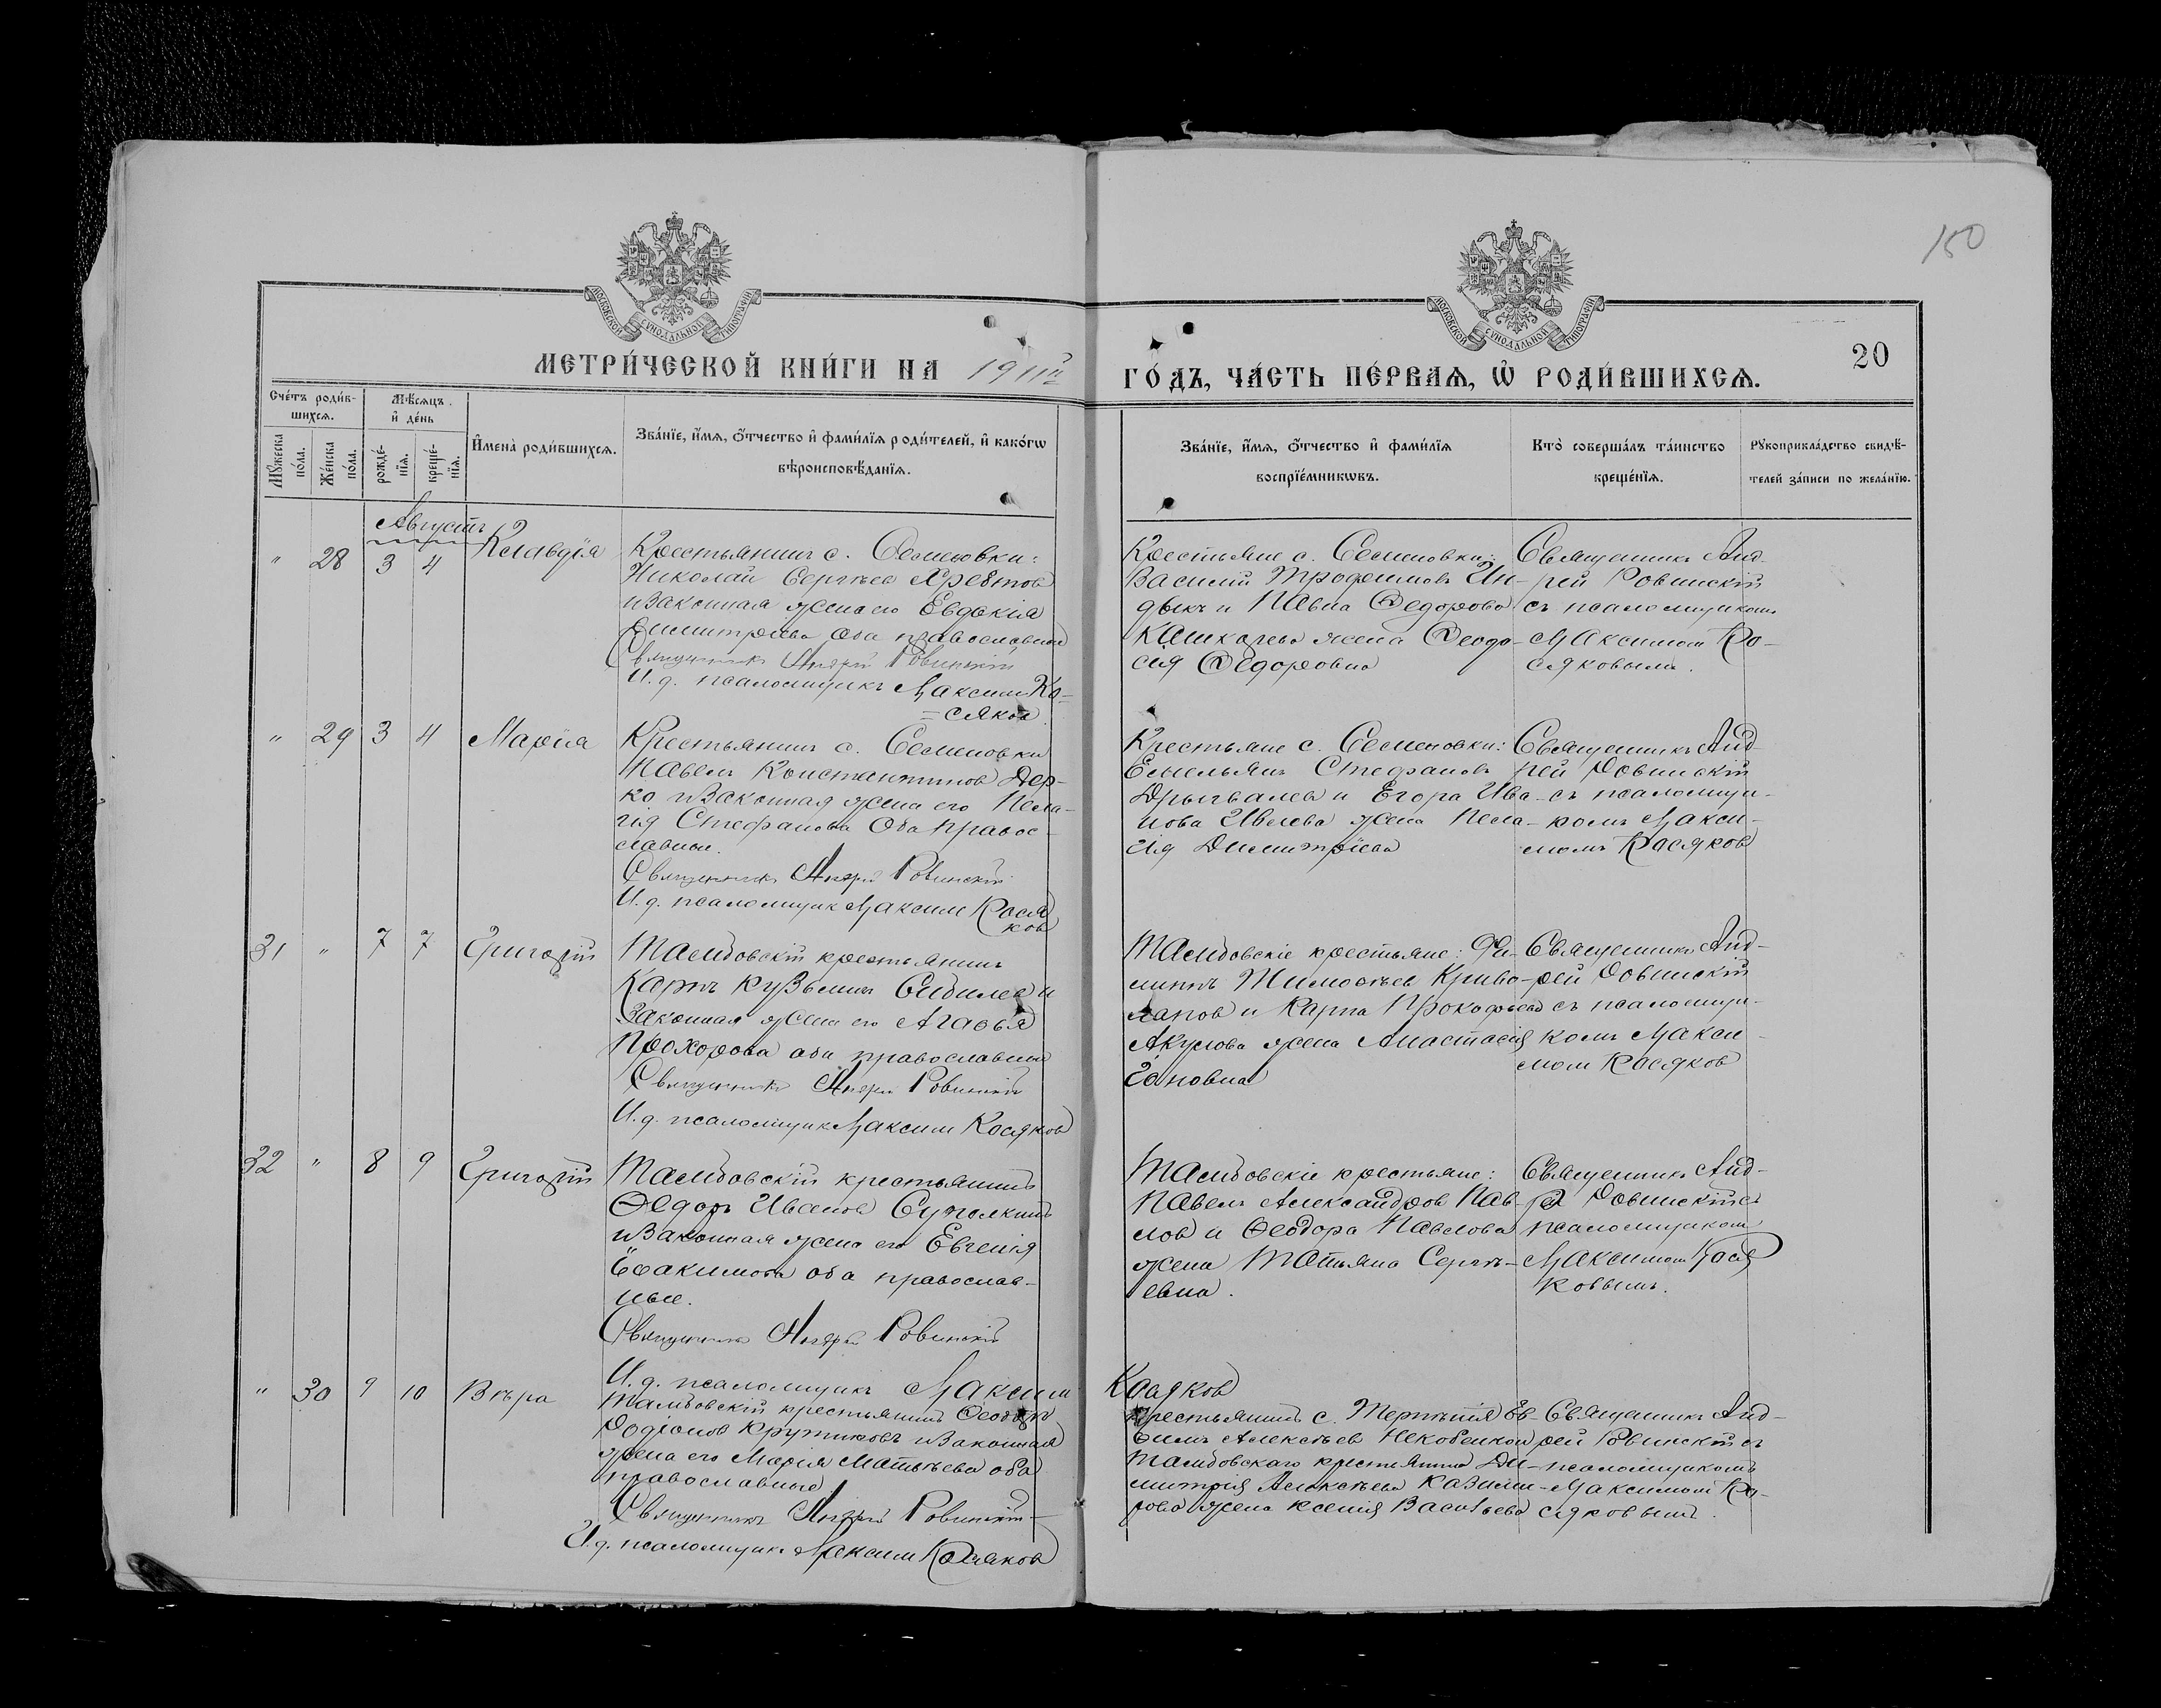 150
МОСКОВСКОЙ СУНОДАЛЬНОЙ ТИПОГРАФИИ
МОСКОВСКОЙ СУНОДАЛЬНОЙ ТИПОГРАФИИ
МЕТРИ́ЧЕСКОЙ КНИ́ГИ НА 1911й
ГО́ДЪ, ЧА́СТЬ ПЕ́РВАЯ, Ѡ РОДИ́ВШИХСЯ.
20
Сче́тъ роди́в-
шихся.
Мѣ́сяцъ
и де́нь
Мꙋ́жеска
по́ла.
Же́нска
по́ла.
рожде́-
нїя.
креще́-
нїя.
Имена̀ роди́вшихся.
Зва́нїе, и́мя, ѻ҆́тчество и фами́лїя роди́телей, и како́гѡ
вѣроисповѣ́данїя.
Зва́нїе, и́мя, ѻ҆́тчество и фами́лїя
воспрїе́мникѡвъ.
Кто̀ соверша́лъ та́инство
креще́нїя.
Рꙋкоприкла́дство свидѣ́-
телей за́писи по жела́нїю.
Августъ
" 28 3 4 Клавдія
Крестьянинъ с. Семеновки:
Николай Сергѣев Хребтов
и законная жена его Евдокія
Димитріева оба православной
Священникъ Андрей Ровинскій
И. д. псаломщикъ Максим Ко-
=сяков.
Крестьяне с. Семеновки:
Василій Трофимовъ Ин-
дыкъ и Павла Федорова
жена Феодо-
сія Федоровна
Священникъ Анд-
рей Ровинскій
съ псаломщиком
Максимом Ко-
сяковымъ.
" 29 3 4 Марія
Крестьянинъ с. Семеновки
Павелъ Константинов Дер-
ко и законная жена его Пела-
гія Стефанова оба правос-
лавные.
Священникъ Андрей Ровинскій
И. д. псаломщик Максим Кося
ков
Крестьяне с. Семеновки:
Емельянъ Стефановъ
и Егора Ива-
нова Ивлева жена Пела-
гія Димитріева
Священникъ Анд-
рей Ровинскій
съ псаломщи-
комъ Макси-
момъ Косяков
31 " 7 7 Григорій
Тамбовскій крестьянинъ
Карпъ Кузьминъ и
законная жена его Агафья
Прохорова оба православные
Священникъ Андрей Ровинскій
И. д. псаломщик Максим Косяков
Тамбовскіе крестьяне: Фи-
липпъ Тимофѣев Криво-
лапов и Карпа Прокофьева
Акулова жена Анастасія
Священникъ Анд-
рей Ровинскій
съ псаломщи-
комъ Макси-
мом Косяков
32 " 8 9 Григорій
Тамбовскій крестьянинъ
Федоръ Иванов
и законная жена его Евгенія
Евакимова оба православ-
ные.
Священникъ Андрей Ровинскій
И. д. псаломщикъ Максим
Косяков
Тамбовскіе крестьяне:
Павелъ Александров Пав-
лов и Феодора Павлова
жена Татьяна Сергѣ-
евна.
Священникъ Анд-
рей Ровинскій съ
псаломщиком
Максимом Кося
ковымъ.
" 30 9 10 Вѣра
Тамбовскій крестьянинъ
Родіонов Крутиковъ и законная
жена его Марія Матвѣева оба
православные
Священникъ Андрей Ровинскій
И. д. псаломщикъ Максим Косяков
Крестьянинъ с. Терпѣнія Еф-
фимъ Алексѣев
Тамбовскаго крестьянина Ди-
митрія Алексѣева Казими-
рова жена Ксенія Васильева
Священникъ Анд-
рей Ровинскій съ
псаломщикомъ
Максимом Ко-
сяковымъ.